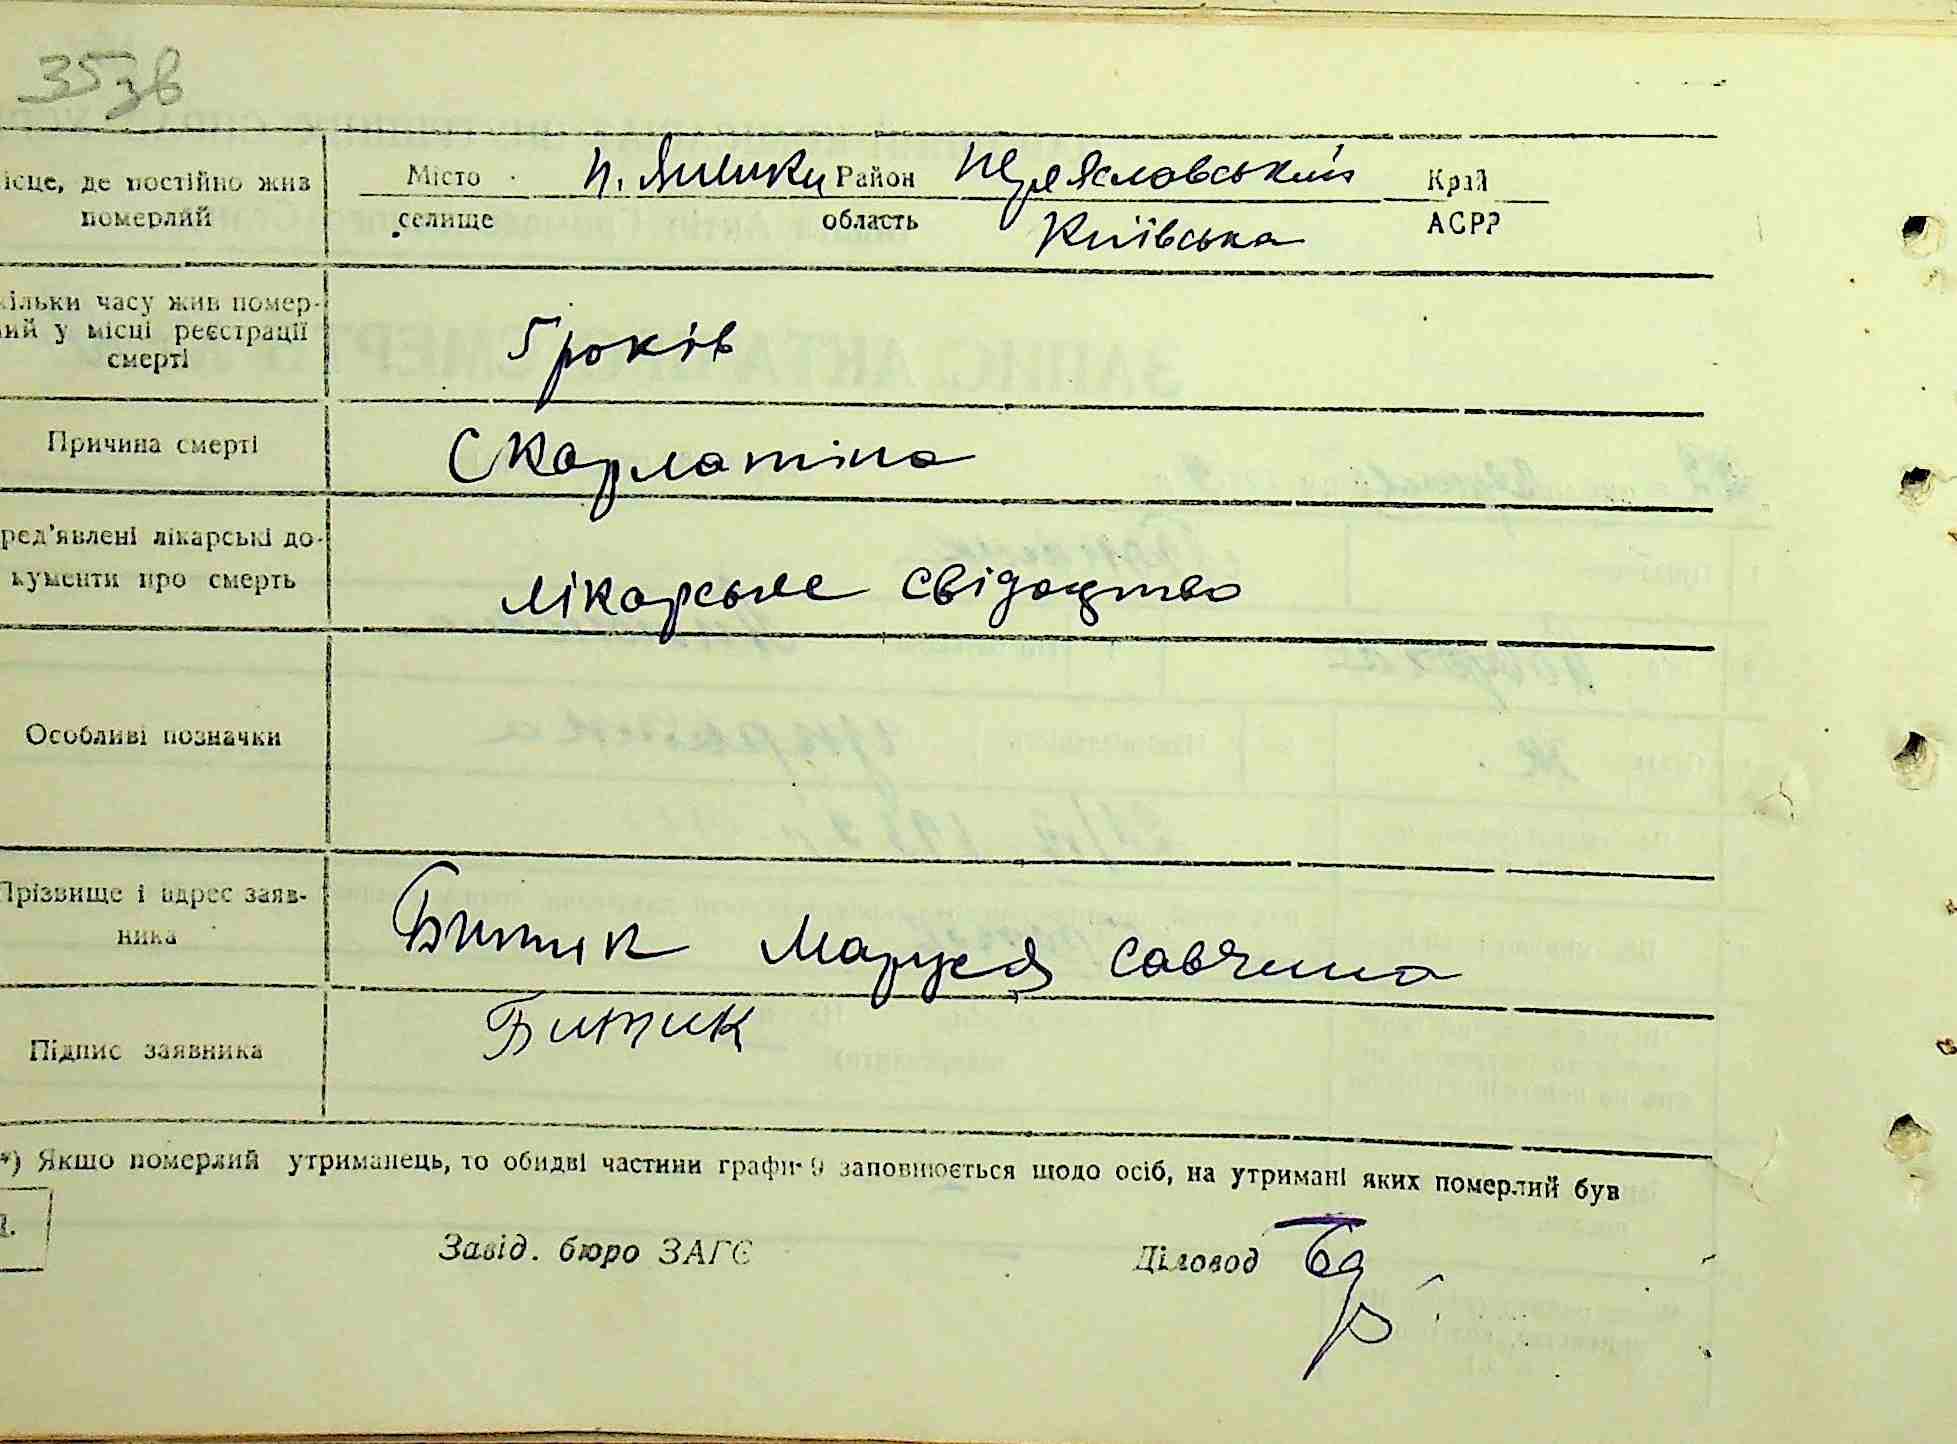 35зв
ісце, де постійно жив
померлий
Місто
селище
Район
область
Переяславський
Київська
Край
АСРР
кільки часу жив помер-
ий у місці реєстрації
смерті
5 років
Причина смерті
Скарлатіна
ред'явлені лікарські до-
кументи про смерть
лікарське свідоцтво
Особливі позначки
Прізвище і адрес заяв-
ника
Битик Маруся Савчина
Підпис заявника
Битик
*) Якщо померлий утриманець, то обидві частини графи 9 заповнюється щодо осіб, на утримані яких померлий був
Завід. бюро ЗАГС
Діловод